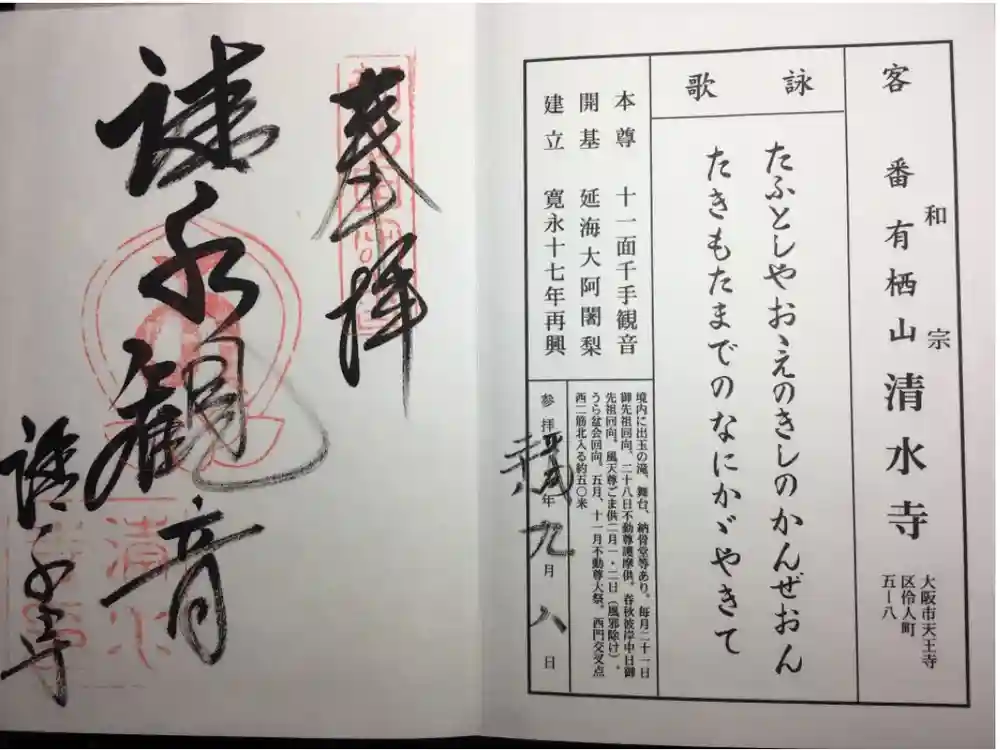 客番 有栖山 清水寺
和宗
大阪市天王寺
区伶人町
五ー八
詠歌
たふとしやおゝえのきしのかんぜおん
たきもたまでのなにかゞやきて
本尊 十一面千手観音
開基 延海大阿闍梨
建立 寛永十七年再興
境内に出玉の滝、舞台、納骨堂等あり。毎月二十一日
御先祖回向、二十八日不動尊護摩供。春秋彼岸中日御
先祖回向。風天尊ごま供二月一・二日（風邪除け）。
うら盆会回向。五月、十一月不動尊大祭。西門交叉点
西二筋北入る約五〇米
参拝 年九月八日
奉拝
観音
清水